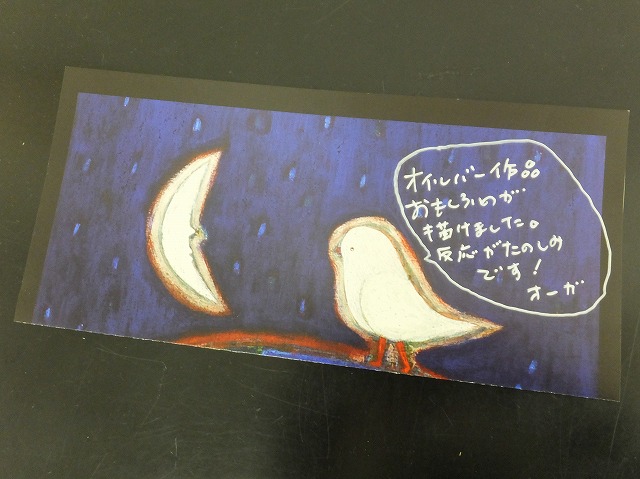 オイルバー作品
おもしろいのが
描けました。
反応がたのしみ
です!
オーガ